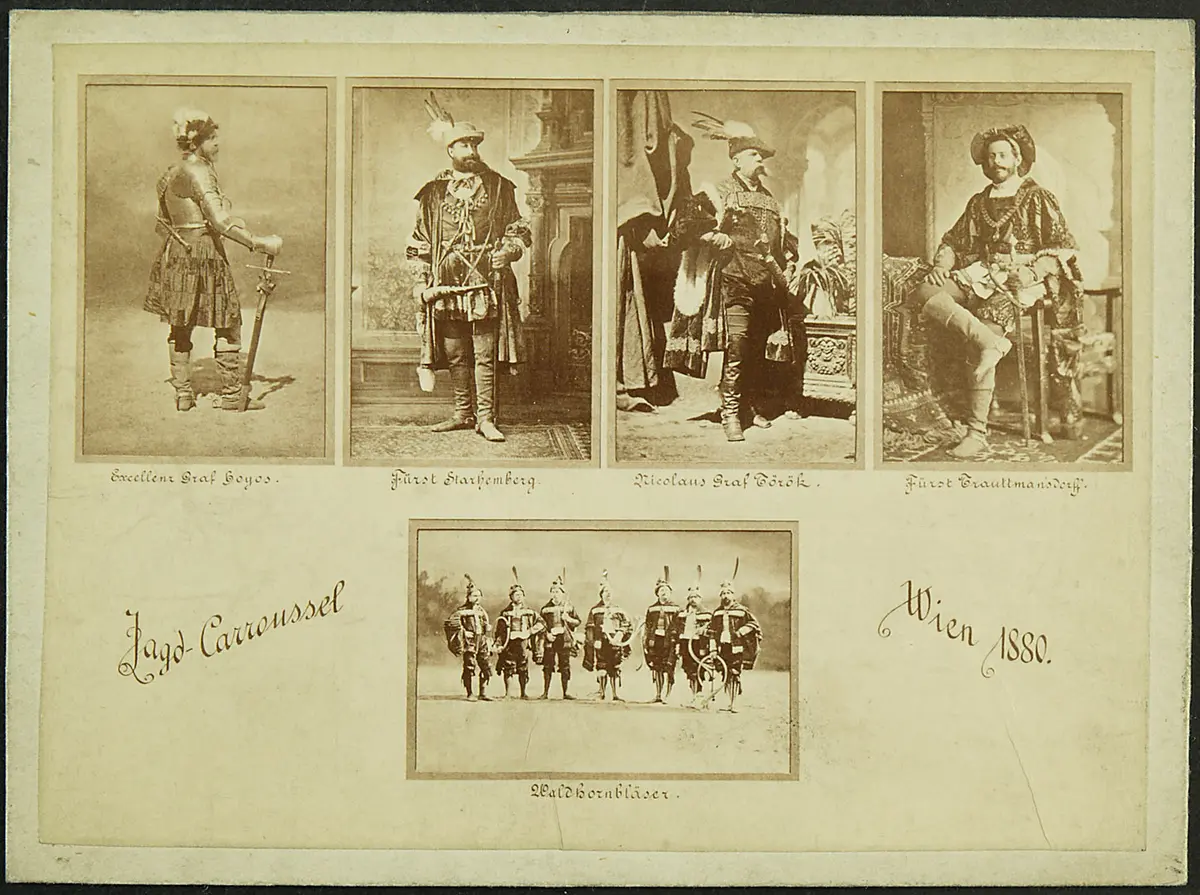 Excellenz Graf Hoyos.
Fürst Starhemberg.
Nicolaus Graf Török.
Fürst Trauttmansdorff.
Jagd-Carroussel
Wien 1880.
Waldhornbläser.